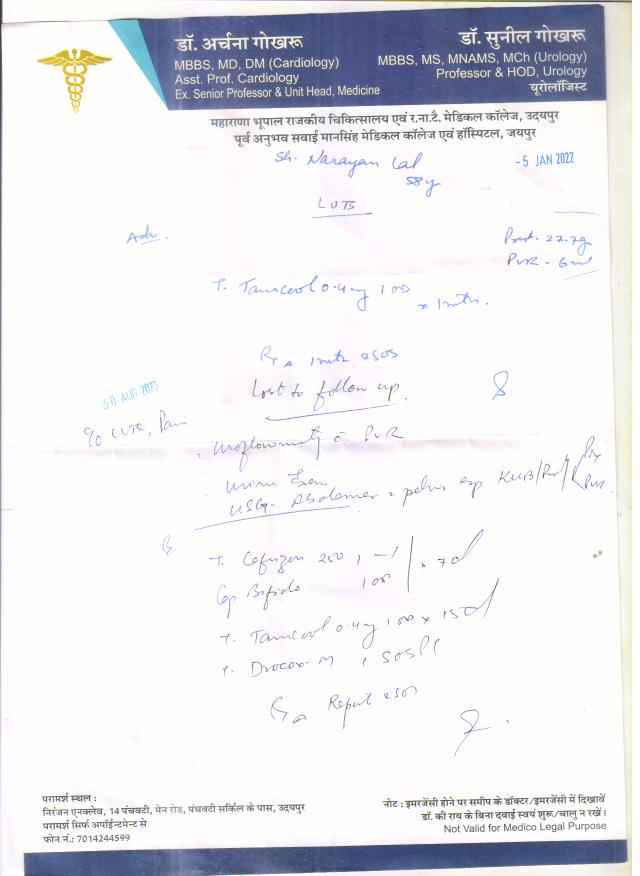 डॉ. अर्चना गोखरू
MBBS, MD, DM (Cardiology)
Asst. Prof. Cardiology
Ex. Senior Professor & Unit Head, Medicine
डॉ. सुनील गोखरू
MBBS, MS, MNAMS, MCh (Urology)
Professor & HOD, Urology
यूरोलॉजिस्ट
महाराणा भूपाल राजकीय चिकित्सालय एवं र.ना.टै. मेडिकल कॉलेज, उदयपुर
पूर्व अनुभव सवाई मानसिंह मेडिकल कॉलेज एवं हॉस्पिटल, जयपुर
Sh. Narayan Lal
58y
-5 JAN 2022
LUTS
Adv.
Prost. 27.7g
PVR - 6ml
T. Tamcool 0.4mg 1 OD
x 1 mth.
R 1 mth
Lost to follow up.
30 AUG 2023
c/o LUTS, Pain
Uroflowmetry c̄ PVR
Urine Exam
USG - Abdomen pelvis KUB/
PVR
T. 250
Cap Bifido 1 OD x 7d
T. Tamcool 0.4mg 1 OD x 15d
T. Drocox-M 1 SOS
Report
परामर्श स्थल :
निरंजन एनक्लेव, 14 पंचवटी, मेन रोड, पंचवटी सर्किल के पास, उदयपुर
परामर्श सिर्फ अपॉईन्टमेन्ट से
फोन नं.: 7014244599
नोट : इमरजेंसी होने पर समीप के डॉक्टर/इमरजेंसी में दिखावें
डॉ. की राय के बिना दवाई स्वयं शुरू/चालु न रखें।
Not Valid for Medico Legal Purpose